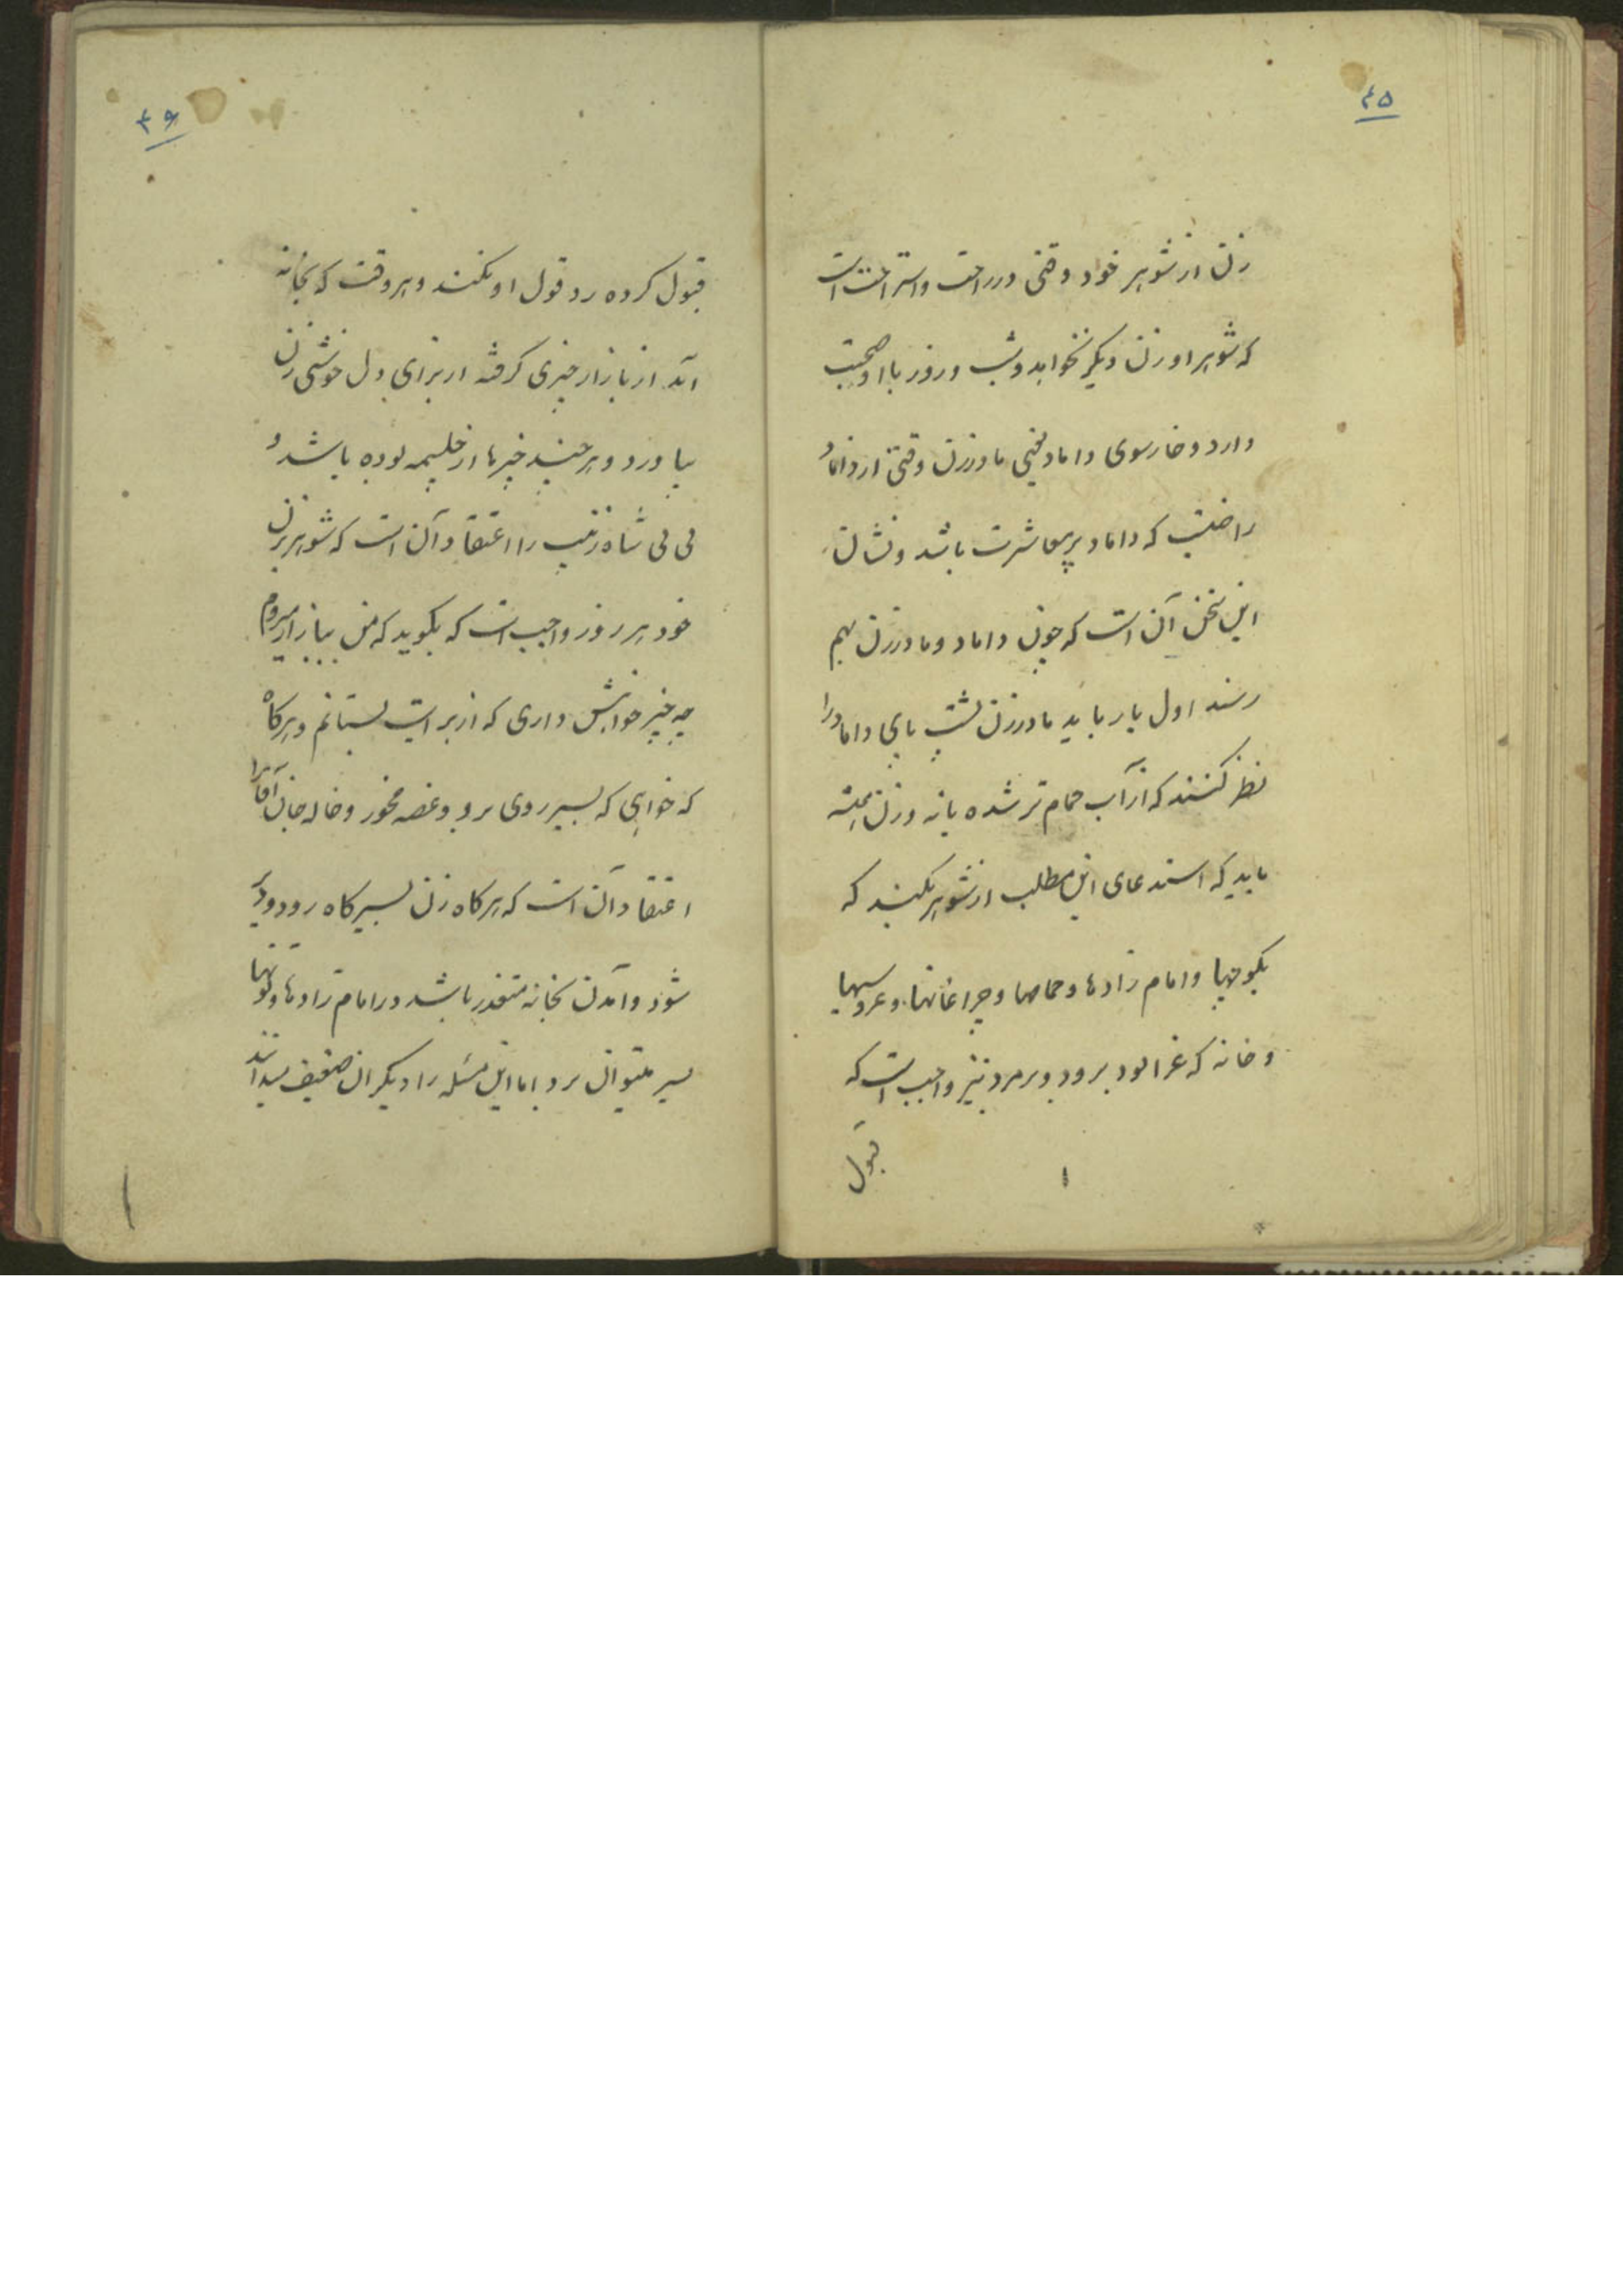 ۴۵
زن از شوهر خود وقتی در راحت و استراحت است
که شوهر او زن دیگر نخواهد و شب و روز با او صحبت
دارد و خارسوی داماد یعنی مادرزن وقتی از داماد
راضیست که داماد پرمعاشرت باشد و نشان
این سخن آن است که چون داماد و مادرزن بهم
رسند اول بار باید مادرزن پشت پای داماد را
نظر کنند که از آب حمام تر شده یا نه و زن همیشه
باید که استدعای این مطلب از شوهر بکند که
بکوچها و امام زادها و حمامها و چراغانها و عروسیها
و خانه که عزا بود برود و بر مرد نیز واجب است که
قبول
۴۶
قبول کرده رد قول او نکند و هر وقت که بخانه
آید از بازار چیزی گرفته از برای دل خوشی زن
بیاورد و هر چند چیزها از خلیمه بوده باشد و
بی بی شاه زینب را اعتقاد آن است که شوهر بزن
خود هر روز واجب است که بگوید که من ببازار میروم
چه چیز خواهش داری که از برایت بستانم و هرگاه
که خواهی که بسیر روی برو و غصه مخور و خاله جان آقا را
اعتقاد آن است که هرگاه زن بسیرگاه رود و دیر
شود و آمدن بخانه متعذر باشد در امام زادها و تونها
بسر میتوان برد اما این مسئله را دیگران ضعیف میدانند